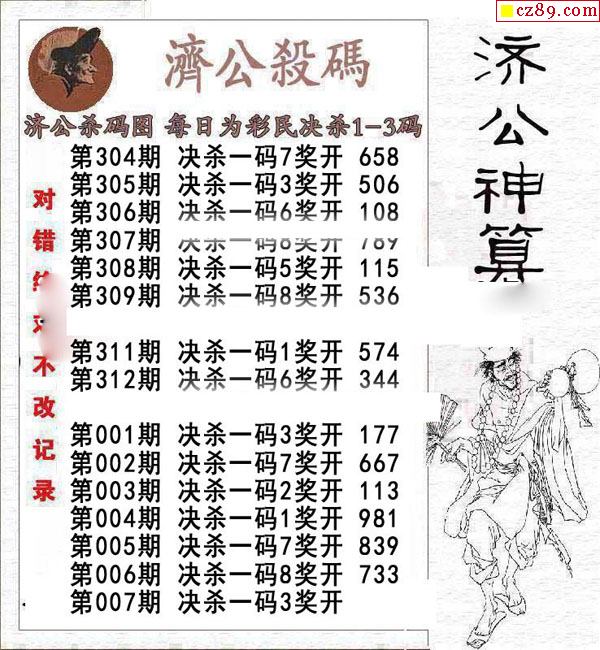 cz89.com
濟公殺碼
济公杀码图 每日为彩民决杀1-3码
第304期 决杀一码7奖开 658
第305期 决杀一码3奖开 506
第306期 决杀一码6奖开 108
第307期 决杀一码8奖开 789
第308期 决杀一码5奖开 115
第309期 决杀一码8奖开 536
第311期 决杀一码1奖开 574
第312期 决杀一码6奖开 344
第001期 决杀一码3奖开 177
第002期 决杀一码7奖开 667
第003期 决杀一码2奖开 113
第004期 决杀一码1奖开 981
第005期 决杀一码7奖开 839
第006期 决杀一码8奖开 733
第007期 决杀一码3奖开
对错绝对不改记录
济公神算